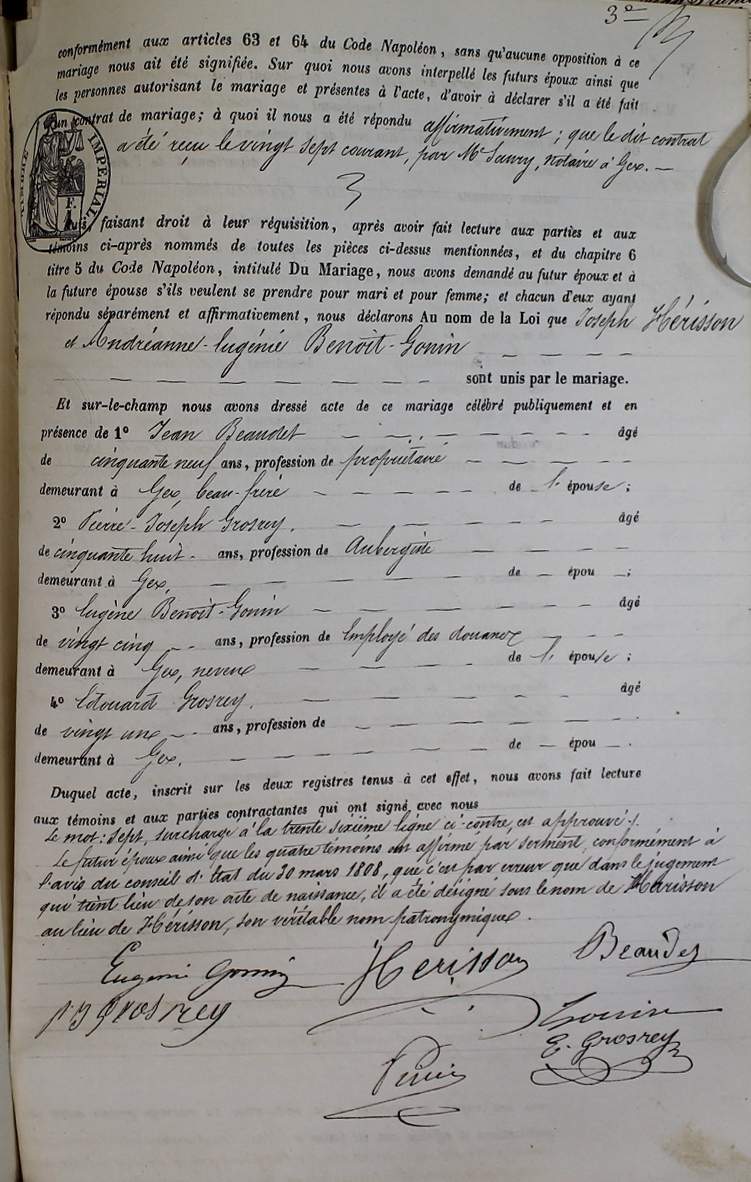 3e
conformément aux articles 63 et 64 du Code Napoléon, sans qu'aucune opposition à ce
mariage nous ait été signifiée. Sur quoi nous avons interpellé les futurs époux ainsi que
les personnes autorisant le mariage et présentes à l'acte, d'avoir à déclarer s'il a été fait
un contrat de mariage; à quoi il nous a été répondu affirmativement; que le dit contrat
a été reçu le vingt sept courant, par Me notaire à Gex. —
TIMBRE IMPÉRIAL
faisant droit à leur réquisition, après avoir fait lecture aux parties et aux
témoins ci-après nommés de toutes les pièces ci-dessus mentionnées, et du chapitre 6
titre 5 du Code Napoléon, intitulé Du Mariage, nous avons demandé au futur époux et à
la future épouse s'ils veulent se prendre pour mari et pour femme; et chacun d'eux ayant
répondu séparément et affirmativement, nous déclarons Au nom de la Loi que Joseph Hérisson
et Andréanne-Eugénie Benoît-Gonin — — — —
— — — — — — — — — sont unis par le mariage.
Et sur-le-champ nous avons dressé acte de ce mariage célébré publiquement et en
présence de 1o Jean Beaudet — — — — — — âgé
de cinquante neuf ans, profession de propriétaire — — — — —
demeurant à Gex, beau-frère — — — — — de l'épouse;
2o Pierre-Joseph Grosrey. — — — — — — âgé
de cinquante huit - ans, profession de Aubergiste — — — — —
demeurant à Gex, — — — — — — — de — épou —;
3o Eugène Benoît-Gonin — — — — — — âgé
de vingt cinq - - ans, profession de Employé des douanes — — —
demeurant à Gex, neveu — — — — — de l'épouse;
4o Edouard Grosrey. — — — — — — âgé
de vingt uns — - ans, profession de — — — — — — —
demeurant à Gex. — — — — — — — de — épou —.
Duquel acte, inscrit sur les deux registres tenus à cet effet, nous avons fait lecture
aux témoins et aux parties contractantes qui ont signé avec nous
Le mot: sept, surchargé à la trente sixième ligne ci-contre, est approuvé./.
Le futur époux ainsi que les quatre témoins ont affirmé par serment, conformément à
l'avis du conseil d'Etat du 30 mars 1808, que c'est par erreur que dans le jugement
qui tient lieu de son acte de naissance, il a été désigné sous le nom de Harisson
au lieu de Hérisson, son véritable nom patronymique.
Eugénie Gonin Hérisson Beaudet
PJ Grosrey Gonin
E. Grosrey